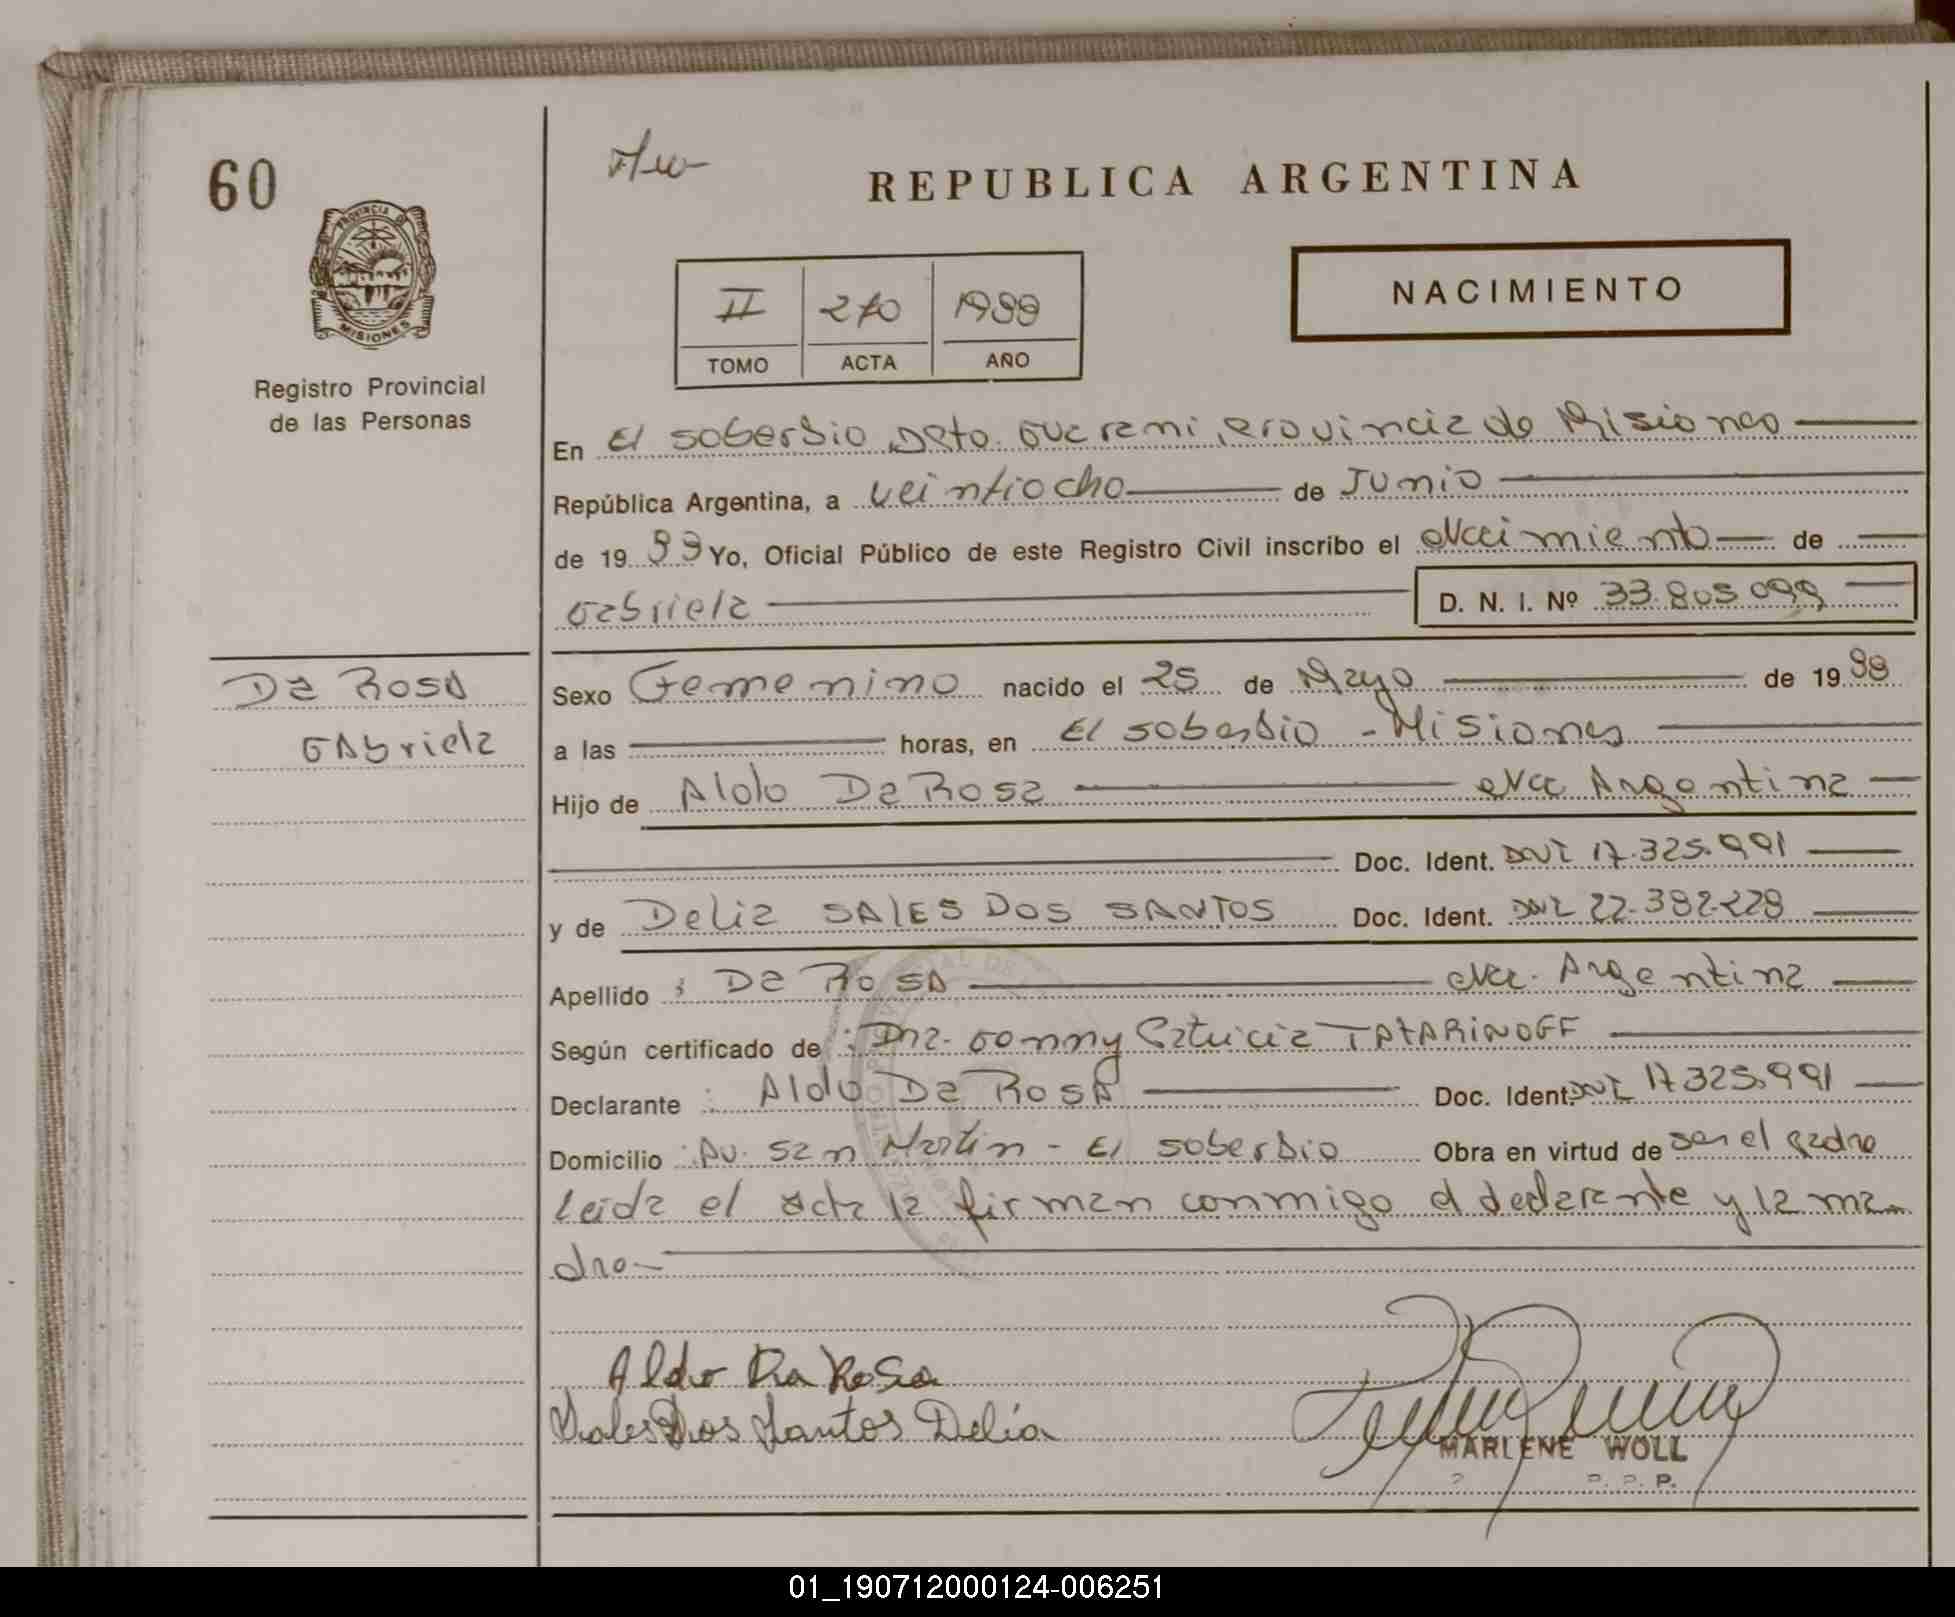 60
REPUBLICA ARGENTINA
PROVINCIA DE
MISIONES
Registro Provincial
de las Personas
II 270
TOMO ACTA AÑO
NACIMIENTO
En El soberbio Dpto. Guarani, Provincia de Misiones
República Argentina, a veintiocho de Junio
de 19 Yo, Oficial Público de este Registro Civil inscribo el Nacimiento de
Gabriela D. N. I. Nº 33.805.099
Da Rosa
Gabriela
Sexo Femenino nacido el 25 de Mayo de 19
a las horas, en El soberbio - Misiones
Hijo de Aldo Da Rosa Nac Argentina
Doc. Ident. DNI 17.325.991
y de Delia SALES DOS SANTOS Doc. Ident. DNI 22.382.228
Apellido : Da Rosa Nac. Argentina
Según certificado de : Dra. Patricia TATARINOFF
Declarante : Aldo Da Rosa Doc. Ident. DNI 17325.991
Domicilio : Av. San Martin - El soberbio Obra en virtud de ser el padre
Leida el acta la firman conmigo el declarante y la ma
dre
Aldo Da Rosa
Sales Dos Santos Delia
MARLENE WOLL
01_190712000124-006251